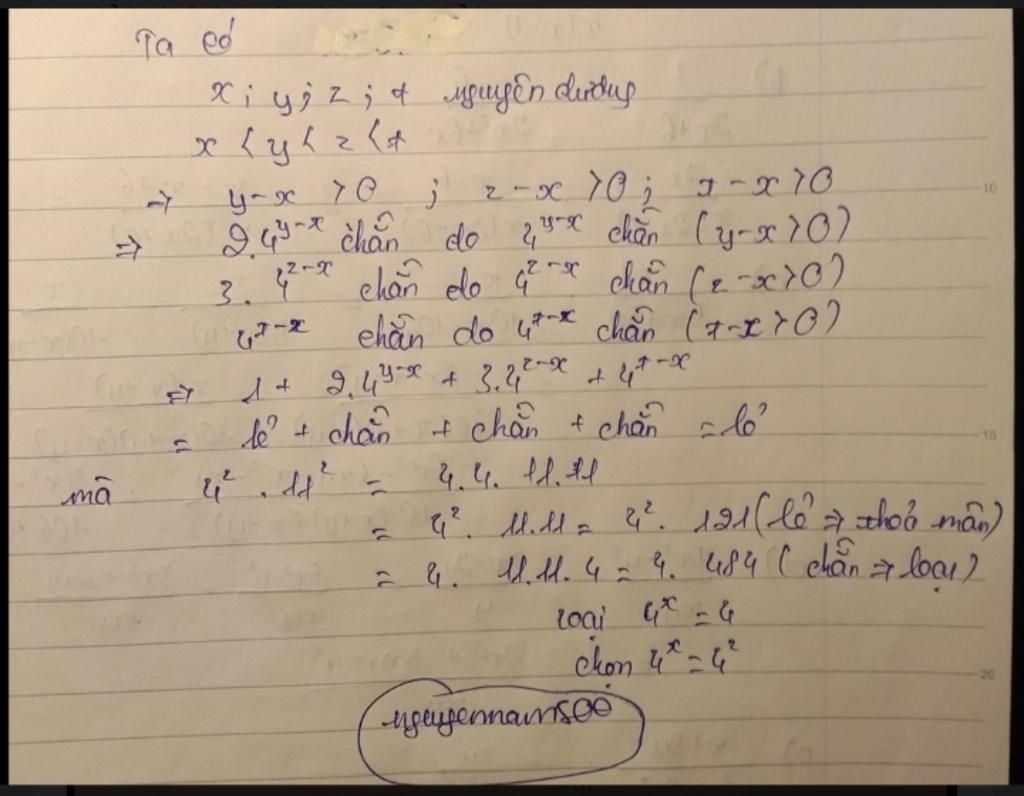 Ta có
x; y; z; t nguyên dương
x < y < z < t
→ y-x > 0 ; z-x > 0; t-x > 0
⇒ 2.4^{y-x} chẵn do 4^{y-x} chẵn (y-x > 0)
3. 4^{z-x} chẵn do 4^{z-x} chẵn (z-x > 0)
4^{t-x} chẵn do 4^{t-x} chẵn (t-x > 0)
⇒ 1 + 2.4^{y-x} + 3.4^{z-x} + 4^{t-x}
= lẻ + chẵn + chẵn + chẵn = lẻ
mà 4² . 11² = 4.4. 11.11
= 4². 11.11 = 4². 121 (lẻ ⇒ thoả mãn)
= 4. 11.11.4 = 4. 484 (chẵn ⇒ loại)
loại 4^x = 4
chọn 4^x = 4²
10
15
20